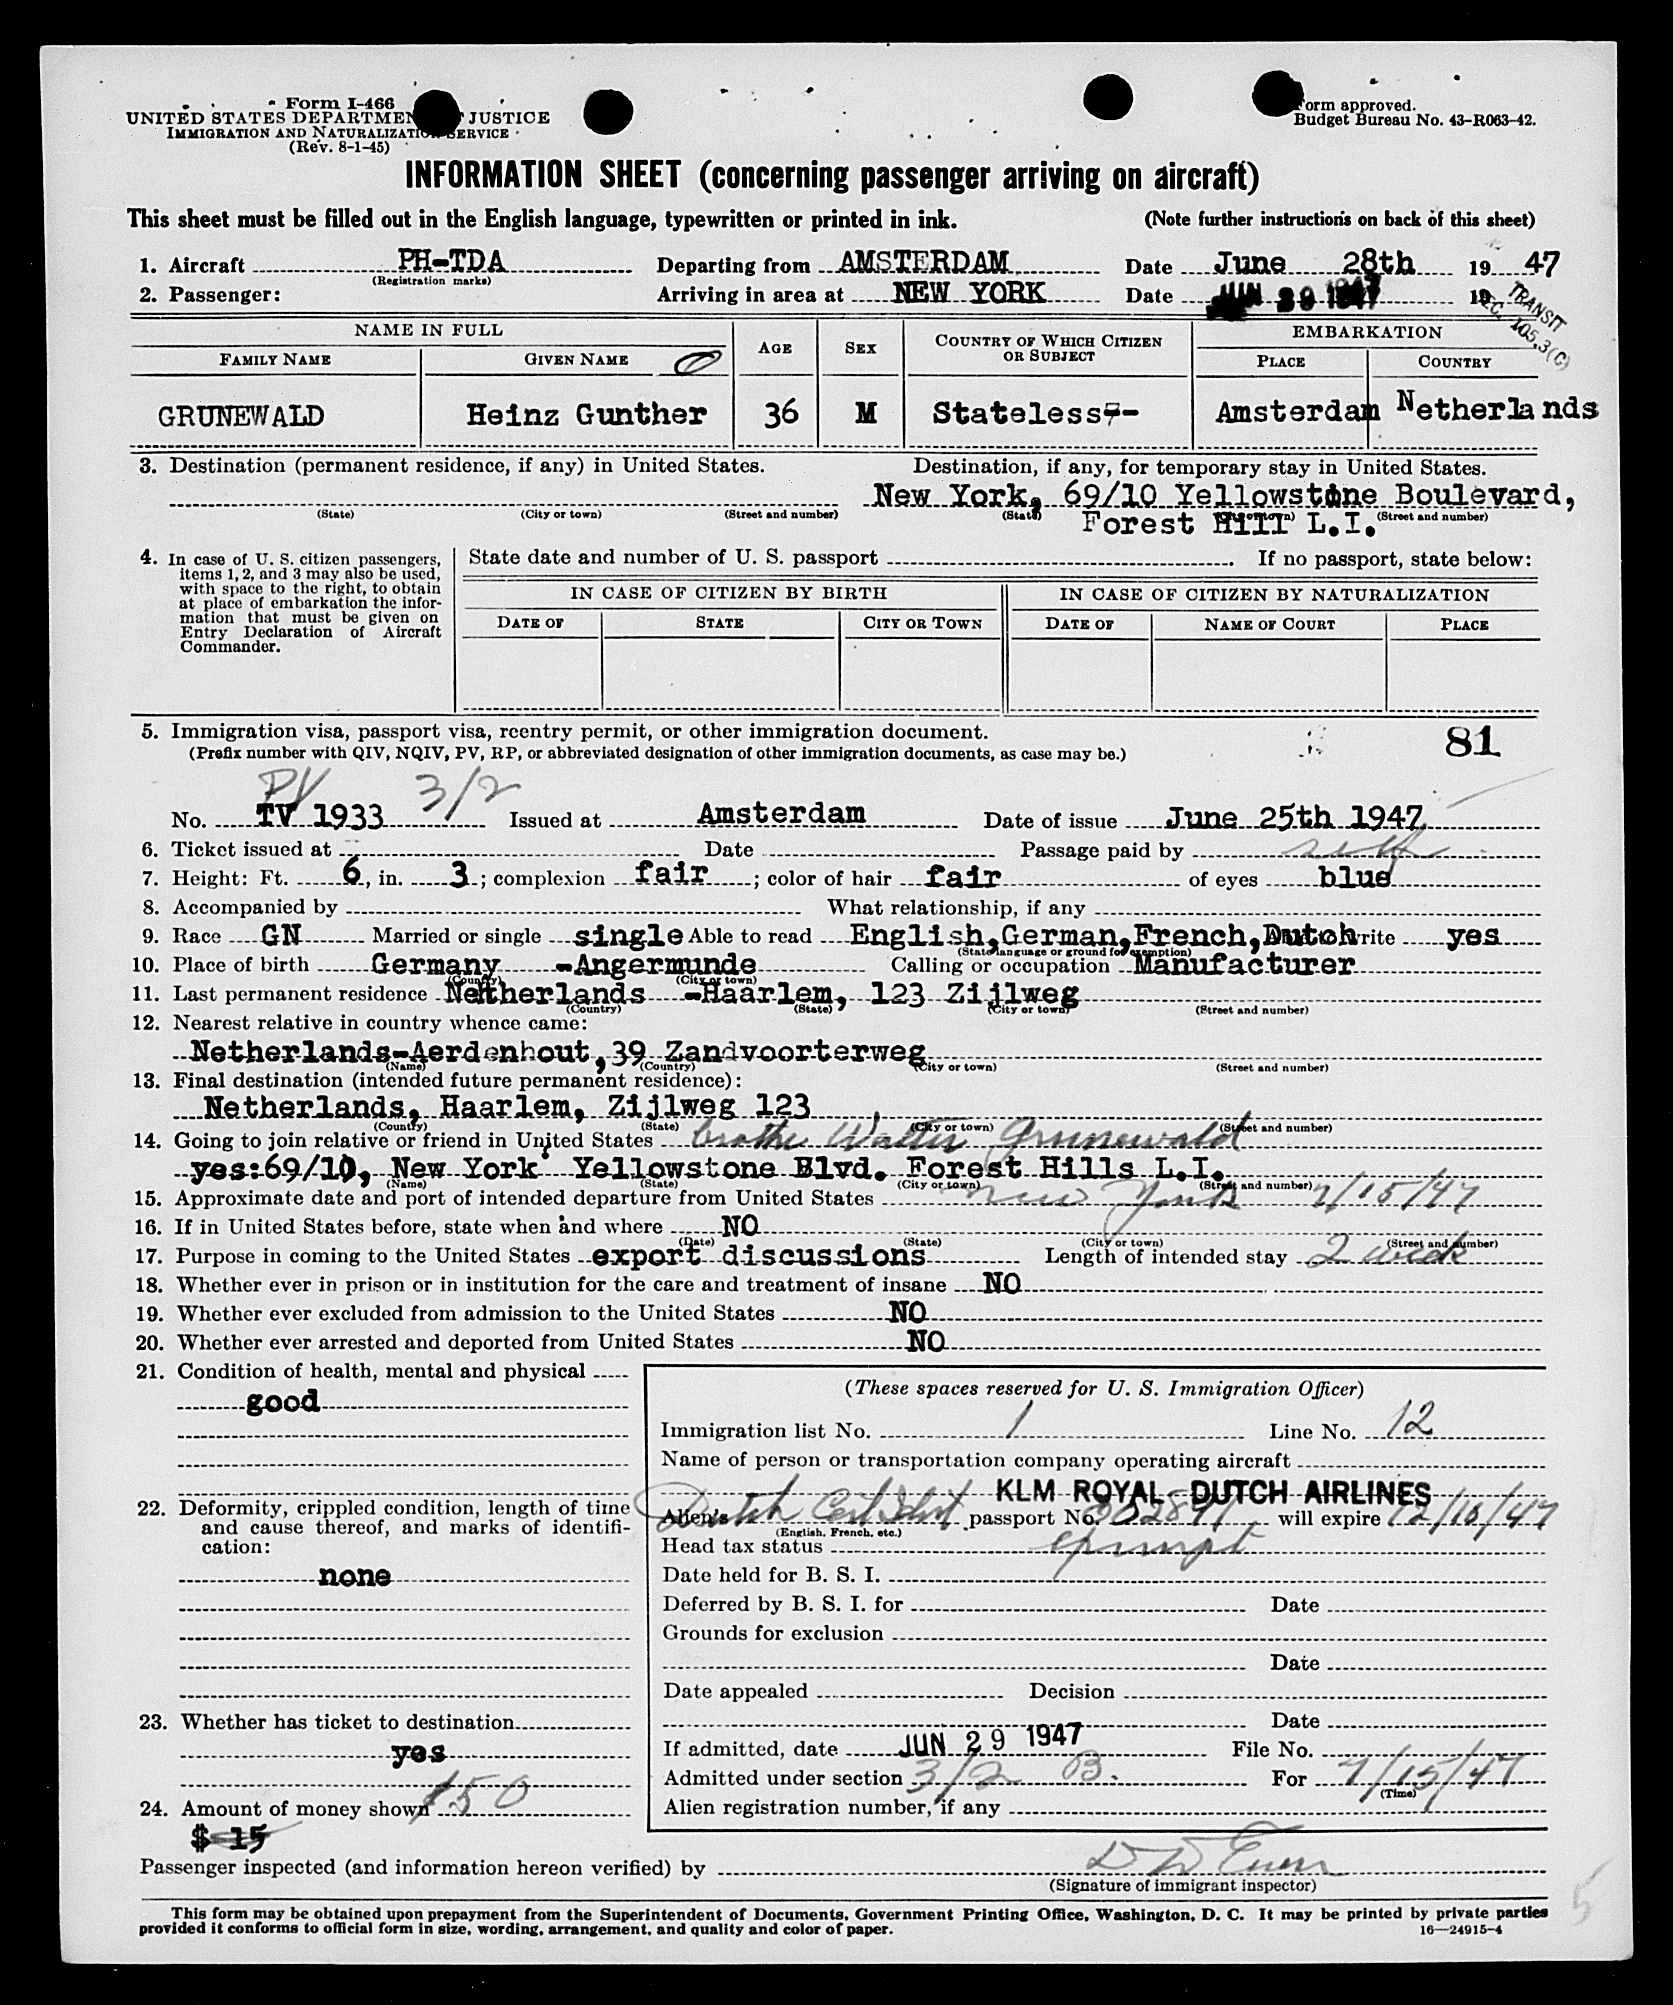 Form I-466
UNITED STATES DEPARTMENT OF JUSTICE
IMMIGRATION AND NATURALIZATION SERVICE
(Rev. 8-1-45)
Form approved.
Budget Bureau No. 43-R063-42.
INFORMATION SHEET (concerning passenger arriving on aircraft)
This sheet must be filled out in the English language, typewritten or printed in ink. (Note further instructions on back of this sheet)
1. Aircraft PH-TDA Departing from AMSTERDAM Date June 28th 1947
(Registration marks)
2. Passenger: Arriving in area at NEW YORK Date JUN 29 1947 19
TRANSIT
SEC. 105.3(C)
NAME IN FULL AGE SEX COUNTRY OF WHICH CITIZEN OR SUBJECT EMBARKATION
FAMILY NAME GIVEN NAME PLACE COUNTRY
GRUNEWALD Heinz Gunther 36 M Stateless-- Amsterdam Netherlands
3. Destination (permanent residence, if any) in United States. Destination, if any, for temporary stay in United States.
New York, 69/10 Yellowstone Boulevard,
(State) (City or town) (Street and number) (State) (City or town) (Street and number)
Forest Hill L.I.
4. In case of U. S. citizen passengers, items 1, 2, and 3 may also be used, with space to the right, to obtain at place of embarkation the information that must be given on Entry Declaration of Aircraft Commander.
State date and number of U. S. passport . If no passport, state below:
IN CASE OF CITIZEN BY BIRTH IN CASE OF CITIZEN BY NATURALIZATION
DATE OF STATE CITY OR TOWN DATE OF NAME OF COURT PLACE
5. Immigration visa, passport visa, reentry permit, or other immigration document.
(Prefix number with QIV, NQIV, PV, RP, or abbreviated designation of other immigration documents, as case may be.)
81
PV 3/2
No. TV 1933 Issued at Amsterdam Date of issue June 25th 1947
6. Ticket issued at Date Passage paid by self
7. Height: Ft. 6, in. 3; complexion fair; color of hair fair of eyes blue
8. Accompanied by What relationship, if any
9. Race GN Married or single single Able to read English,German,French,Dutch Able to write yes
(State language or ground for exemption)
10. Place of birth Germany -Angermunde Calling or occupation Manufacturer
(Country) (City or town)
11. Last permanent residence Netherlands -Haarlem, 123 Zijlweg
(Country) (State) (City or town) (Street and number)
12. Nearest relative in country whence came:
Netherlands-Aerdenhout,39 Zandvoorterweg
(Name) (Country) (City or town) (Street and number)
13. Final destination (intended future permanent residence):
Netherlands, Haarlem, Zijlweg 123
(Country) (State) (City or town) (Street and number)
14. Going to join relative or friend in United States brother Walter Grunewald
yes:69/10, New York Yellowstone Blvd. Forest Hills L.I.
(Name) (State) (City or town) (Street and number)
15. Approximate date and port of intended departure from United States New York 7/15/47
16. If in United States before, state when and where NO
(Date) (State) (City or town) (Street and number)
17. Purpose in coming to the United States export discussions Length of intended stay 2 week
18. Whether ever in prison or in institution for the care and treatment of insane NO
19. Whether ever excluded from admission to the United States NO
20. Whether ever arrested and deported from United States NO
21. Condition of health, mental and physical
good
22. Deformity, crippled condition, length of time and cause thereof, and marks of identification:
none
23. Whether has ticket to destination
yes
24. Amount of money shown 150
$ 15
(These spaces reserved for U. S. Immigration Officer)
Immigration list No. 1 Line No. 12
Name of person or transportation company operating aircraft
KLM ROYAL DUTCH AIRLINES
Alien's Dutch passport No. will expire 12/10/47
(English, French, etc.)
Head tax status exempt
Date held for B. S. I.
Deferred by B. S. I. for Date
Grounds for exclusion
Date
Date appealed Decision
Date
If admitted, date JUN 29 1947 File No.
Admitted under section 3/2 B. For 7/15/47
(Time)
Alien registration number, if any
Passenger inspected (and information hereon verified) by
(Signature of immigrant inspector)
5
This form may be obtained upon prepayment from the Superintendent of Documents, Government Printing Office, Washington, D. C. It may be printed by private parties
provided it conforms to official form in size, wording, arrangement, and quality and color of paper. 16—24915-4